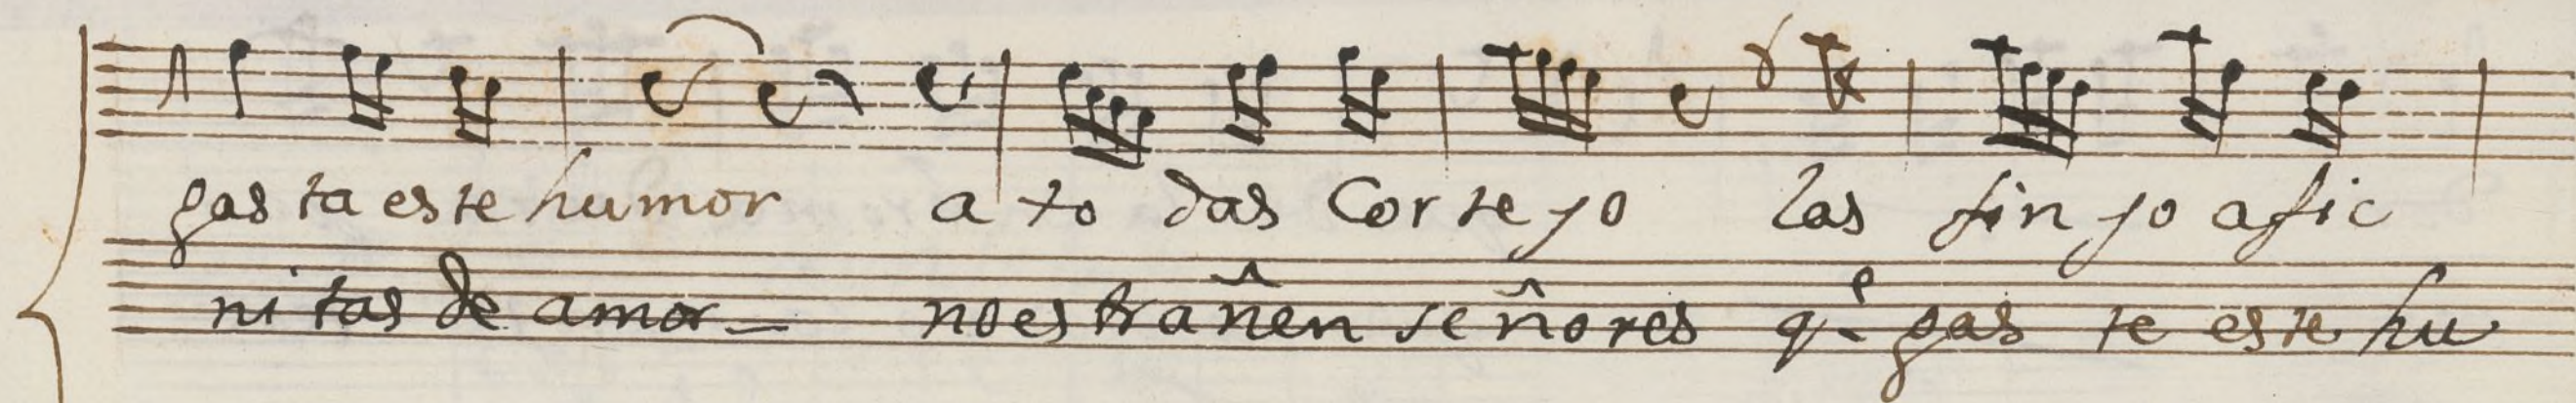 gas ta es te humor a to das Cor te jo las fin jo afic
ni tas de amor no es tra ñen se ño res q.e gas te es te hu